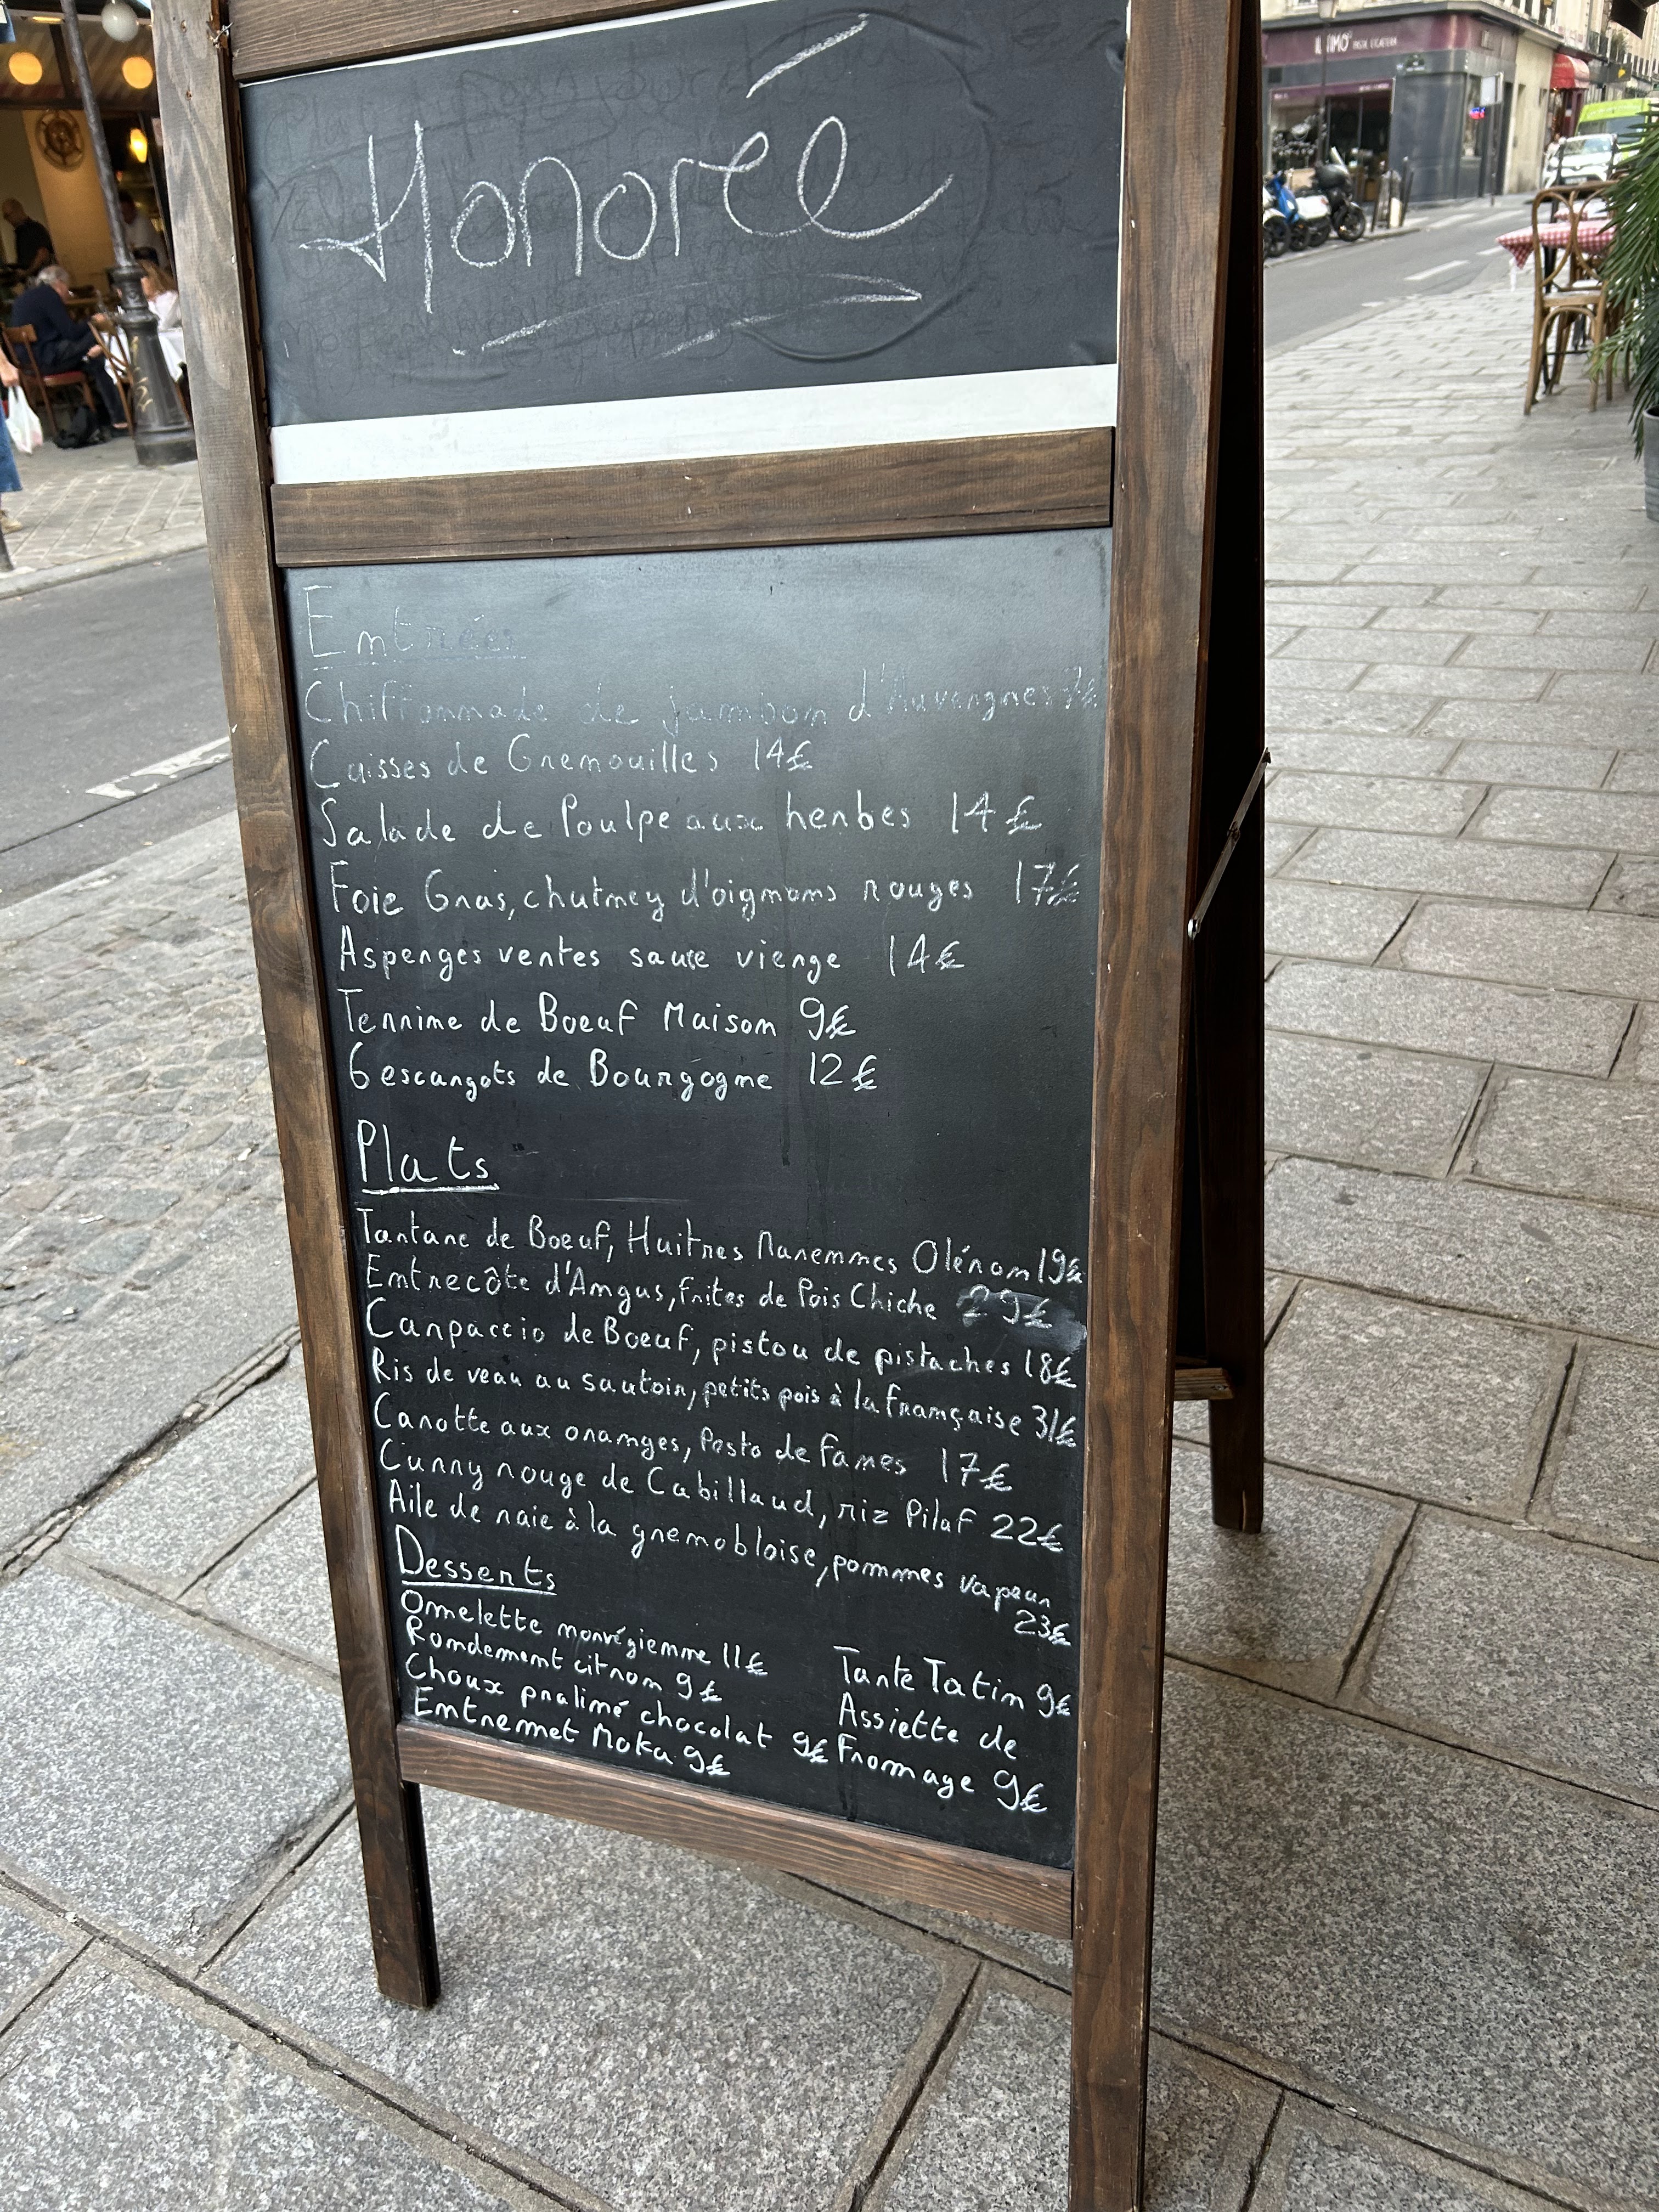 Honoré
Entrées
Chiffonnade de jambon d'Auvergnes
Cuisses de Grenouilles 14€
Salade de Poulpe aux herbes 14€
Foie Gras, chutney d'oignons rouges 17€
Asperges vertes sauce vierge 14€
Terrine de Boeuf Maison 9€
6 escargots de Bourgogne 12€
Plats
Tartare de Boeuf, Huitres Marennes Oléron 19€
Entrecôte d'Angus, frites de Pois Chiche 29€
Carpaccio de Boeuf, pistou de pistaches 18€
Ris de veau au sautoir, petits pois à la française 31€
Carotte aux oranges, Pesto de fanes 17€
Curry rouge de Cabillaud, riz Pilaf 22€
Aile de raie à la grenobloise, pommes vapeur
23€
Desserts
Omelette norvégienne 11€
Rondement citron 9€
Choux praliné chocolat 9€
Entremet Moka 9€
Tarte Tatin 9€
Assiette de
Fromage 9€